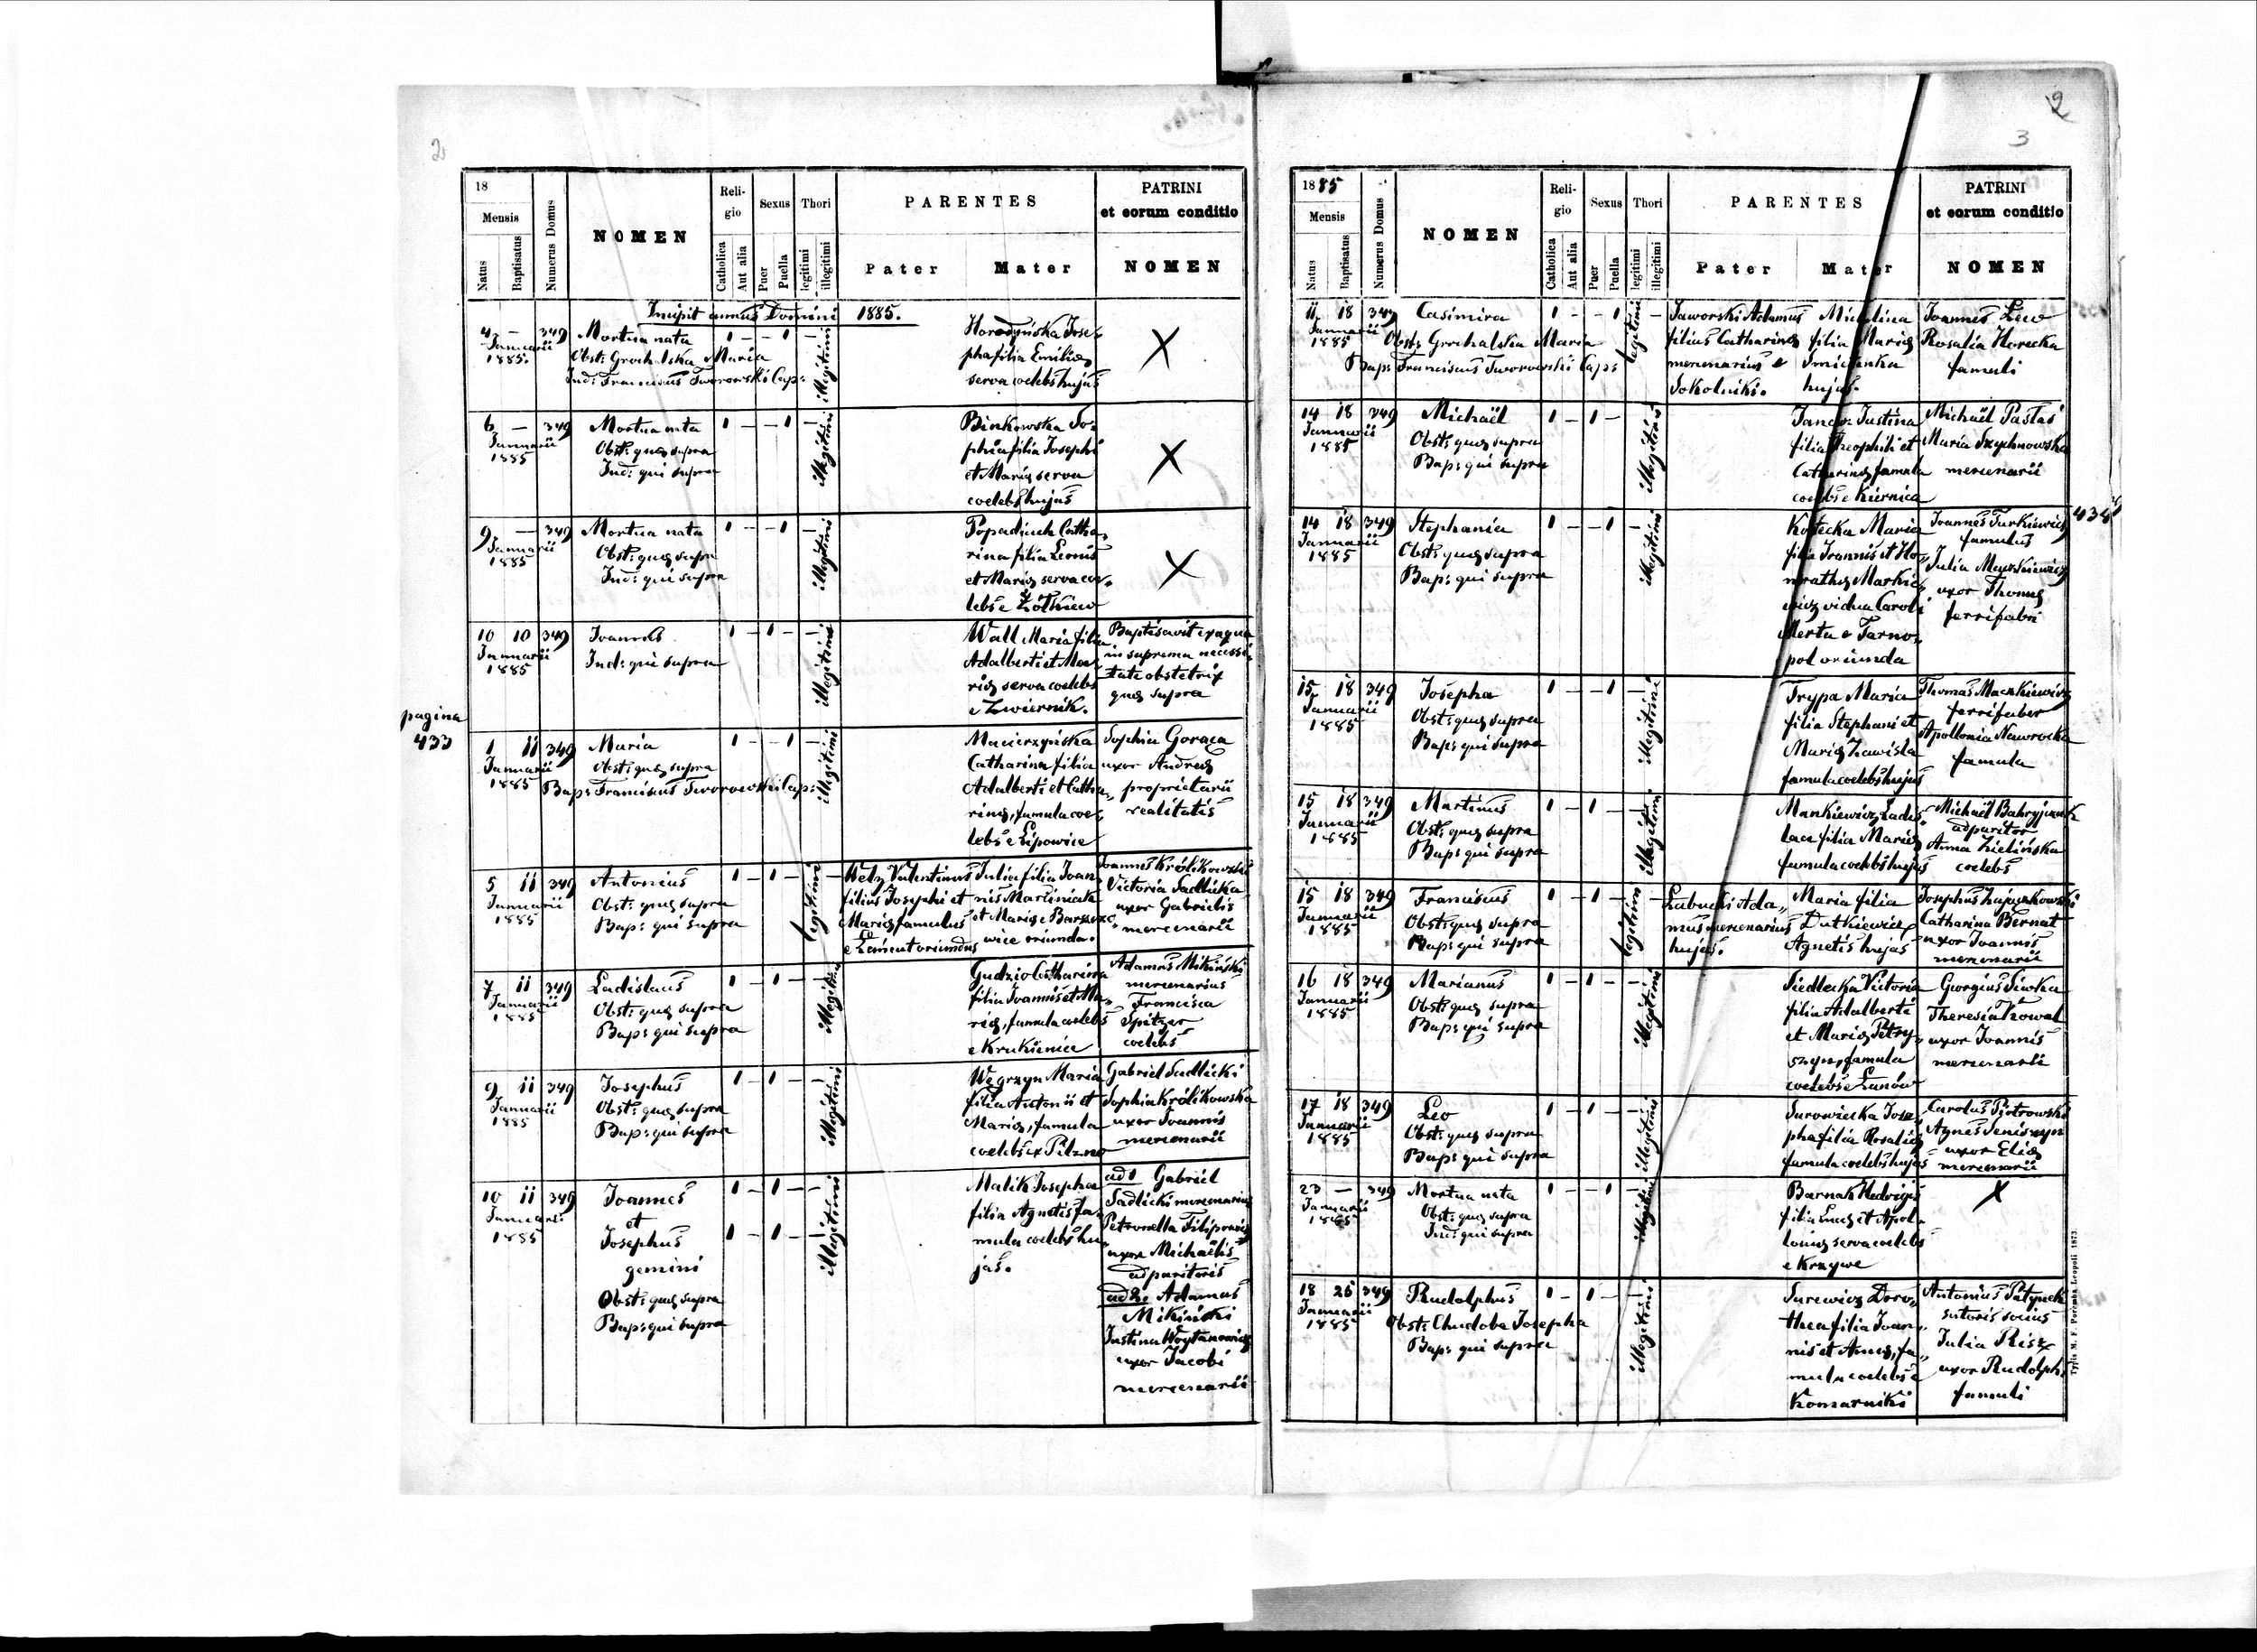 2
18
Mensis
Natus
Baptisatus
Numerus Domus
NOMEN
Reli-
gio
Catholica
Aut alia
Sexus
Puer
Puella
Thori
legitimi
illegitimi
PARENTES
Pater
Mater
PATRINI
et eorum conditio
NOMEN
Incipit annus Domini 1885.
4 — 349
Januarii
1885.
Mortua nata
Obst: Grochalska Maria
Ind: Franciscus Tworowski Cap:
1 — — 1 —
illegitimi
Horodyńska Jose-
pha filia Emiliæ
serva coelebs hujas
X
6 — 349
Januarii
1885
Mortua nata
Obst: quæ supra
Ind: qui supra
1 — — 1 —
illegitimi
Binkowska So-
phia filia Josephi
et Mariæ serva
coelebs hujas
X
9 — 349
Januarii
1885
Mortua nata
Obst: quæ supra
Ind: qui supra
1 — — 1 —
illegitimi
Popadiuch Catha-
rina filia Leonis
et Mariæ serva coe-
lebs e Żółkiew
X
10 10 349
Januarii
1885
Joannes
Ind: qui supra
1 — 1 — —
illegitimi
Wall Maria filia
Adalberti et Ma-
riæ serva coelebs
e Zwiernik.
Baptisavit ex aqua
in suprema necessi-
tate obstetrix
quæ supra
pagina
433
1 11 349
Januarii
1885
Maria
Obst: quæ supra
Bap: Franciscus Tworowski Cap:
1 — — 1 —
illegitimi
Macierzyńska
Catharina filia
Adalberti et Catha-
rinæ, famula coe-
lebs e Lipowice
Sophia Goraca
uxor Andreæ
proprietarii
realitatis
5 11 349
Januarii
1885
Antonius
Obst: quæ supra
Bap: qui supra
1 — 1 — —
legitimi
Welz Valentinus
filius Josephi et
Mariæ famulus
e Łańcut oriundus
Julia filia Joan-
nis Marciniak
et Mariæ e Barszczo-
wice oriunda.
Joannes Królikowski
Victoria Sadlicka
uxor Gabrielis
mercenarii
7 11 349
Januarii
1885
Ladislaus
Obst: quæ supra
Bap: qui supra
1 — 1 — —
illegitimi
Gudzio Catharina
filia Joannis et Ma-
riæ, famula coelebs
e Krukienice
Adamus Mikiński
mercenarius
Francisca
Spitzer
coelebs
9 11 349
Januarii
1885
Josephus
Obst: quæ supra
Bap: qui supra
1 — 1 — —
illegitimi
Węgrzyn Maria
filia Antonii et
Mariæ, famula
coelebs ex Pilzno
Gabriel Sadlicki
Sophia Królikowska
uxor Joannis
mercenarii
10 11 349
Januarii
1885
Joannes
et
Josephus
gemini
Obst: quæ supra
Bap: qui supra
1 — 1 — —
1 — 1 — —
illegitimi
Malik Josepha
filia Agnetis fa-
mula coelebs hu-
jas.
ad 1 Gabriel
Sadlicki mercenarius
Petronella Filipowicz
uxor Michaëlis
adparitoris
ad 2. Adamus
Mikiński
Justina Wojtanowicz
uxor Jacobi
mercenarii
2
3
1885
Mensis
Natus
Baptisatus
Numerus Domus
NOMEN
Reli-
gio
Catholica
Aut alia
Sexus
Puer
Puella
Thori
legitimi
illegitimi
PARENTES
Pater
Mater
PATRINI
et eorum conditio
NOMEN
11 18 349
Januarii
1885
Casimira
Obst: Grochalska Maria
Bap: Franciscus Tworowski Cap:
1 — — 1 —
legitimi
Jaworski Adamus
filius Catharinæ
mercenarius e
Sokolniki.
Michalina
filia Mariæ
hujas.
Joannes Lew
Rosalia Horecka
famuli
14 18 349
Januarii
1885
Michaël
Obst: quæ supra
Bap: qui supra
1 — 1 — —
illegitimi
Justina
filia Theophili et
Catharinæ famula
coelebs e Kiernica
Michaël Pastas
Maria Szychnowska
mercenarii
14 18 349
Januarii
1885
Stephania
Obst: quæ supra
Bap: qui supra
1 — — 1 —
illegitimi
Kotecka Maria
filia Joannis et Ho-
norathæ Markie-
wicz vidua Caroli
Merta e Tarno-
pol oriunda
Joannes Turkiewicz
famulus
Julia
uxor Thomæ
ferrifabri
434
15 18 349
Januarii
1885
Josepha
Obst: quæ supra
Bap: qui supra
1 — — 1 —
illegitimi
Trypa Maria
filia Stephani et
Mariæ Zawisla
famula coelebs hujas
Thomas Mackiewicz
ferrifaber
Apollonia Nawrocka
famula
15 18 349
Januarii
1885
Martinus
Obst: quæ supra
Bap: qui supra
1 — 1 — —
illegitimi
Mankiewicz Ladis-
laa filia Mariæ
famula coelebs hujas
Michaël Bahryjczuk
adparitor
Anna Zielińska
coelebs
15 18 349
Januarii
1885
Franciscus
Obst: quæ supra
Bap: qui supra
1 — 1 — —
legitimi
Łabucki Ada-
mus mercenarius
hujas.
Maria filia
Dutkiewicz
Agnetis hujas
Josephus Zajączkowski
Catharina Bernat
uxor Joannis
mercenarii
16 18 349
Januarii
1885
Marianus
Obst: quæ supra
Bap: qui supra
1 — 1 — —
illegitimi
Siedlecka Victoria
filia Adalberti
et Mariæ Petry-
szyn, famula
coelebs e Łanów
Georgius Siwka
Theresia Kowal
uxor Joannis
mercenarii
17 18 349
Januarii
1885
Leo
Obst: quæ supra
Bap: qui supra
1 — 1 — —
illegitimi
Surowiecka Jose-
pha filia Rosaliæ
famula coelebs hujas
Carolus Piotrowski
Agnes Seniszyn
uxor Eliæ
mercenarii
23 — 349
Januarii
1885
Mortua nata
Obst: quæ supra
Ind: qui supra
1 — — 1 —
illegitimi
Barnak Hedvigis
filia Lucæ et Apol-
loniæ serva coelebs
e Krzywe
X
18 25 349
Januarii
1885
Rudolphus
Obst: Chudoba Josepha
Bap: qui supra
1 — 1 — —
illegitimi
Surewicz Doro-
thea filia Joan-
nis et Annæ, fa-
mula coelebs e
Komarniki
Antonius Patynek
sutoris socius
Julia Risz
uxor Rudolphi
famuli
Typis M. F. Poremba Leopoli 1873.